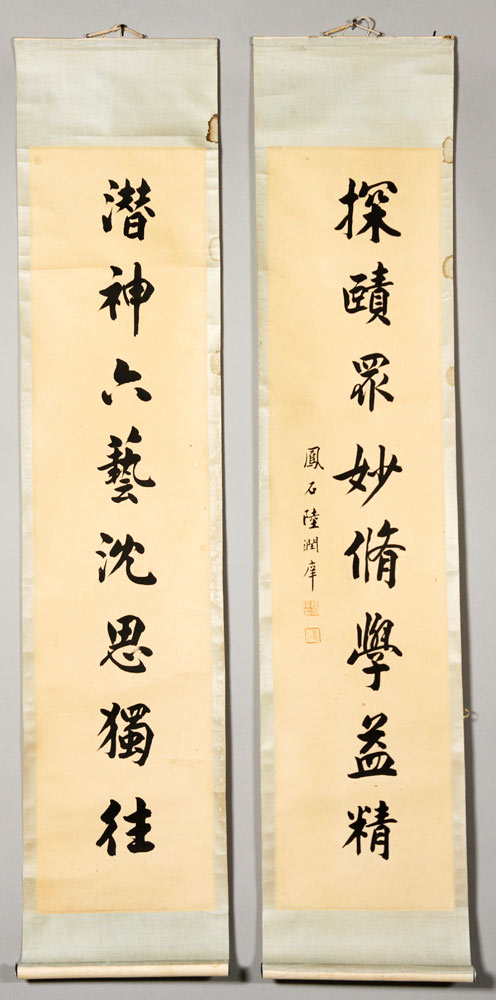 潛神六藝沈思獨往
探賾眾妙脩學益精
鳳石陸潤庠